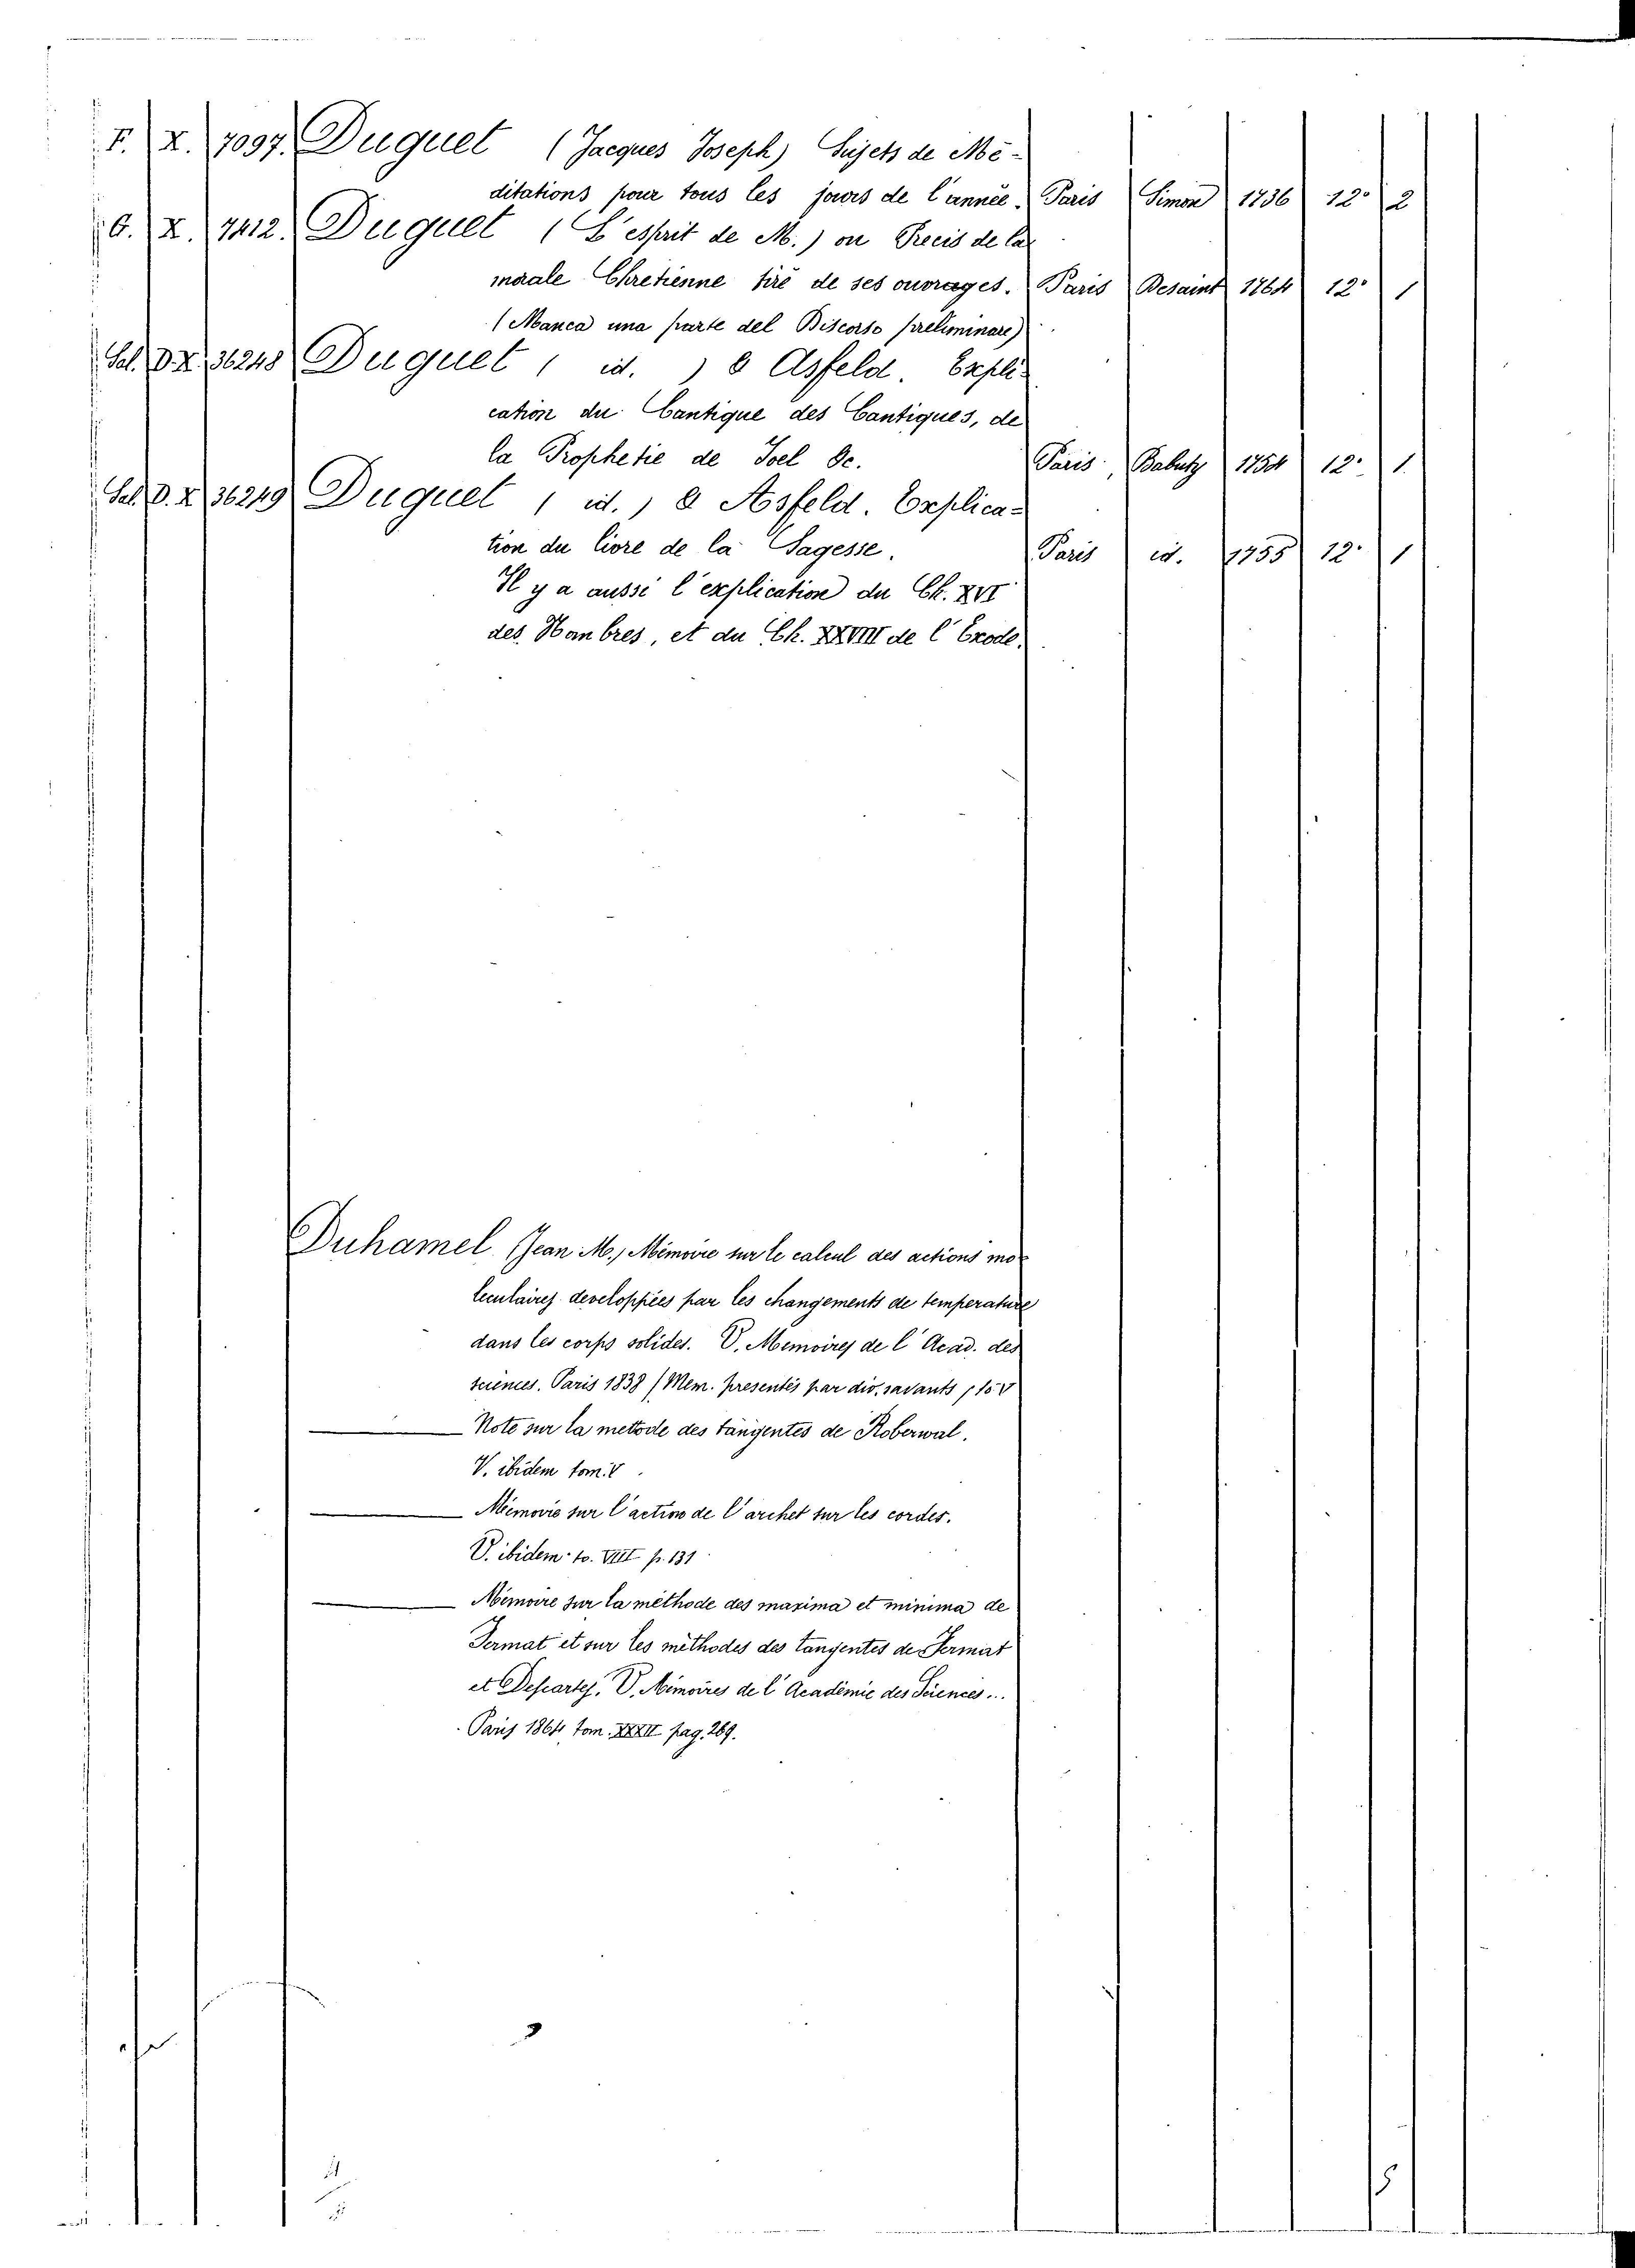 F. X. 7097. Duquet (Jacques Joseph) Sujets de Mé-
ditations pour tous les jours de l'année. Paris Simon 1736 12° 2
G. X. 7412. Duguet (L'esprit de M.) ou Precis de la
morale Chretienne tiré de ses ouvrages. Paris Desaint 1764 12° 1
(Manca una parte del Discorso preliminare)
Sal. D. X. 36248 Duguet ( id. ) & Asfeld. Expli-
cation du Cantique des Cantiques, de
la Prophetie de Joel &c. Paris Babuty 1754 12° 1.
Sal. D. X. 36249 Duguet ( id. ) & Asfeld. Explica-
tion du livre de la Sagesse. Paris id. 1755 12° 1
Il y a aussi l'explication du Ch. XVI
des Nombres, et du Ch. XXVIII de l'Exode.
Duhamel (Jean M.) Mémoire sur le calcul des actions mo-
leculaires developpées par les changements de temperature
dans les corps solides. V. Memoires de l'Acad. des
sciences. Paris 1838 (Mem. presentés par div. savants) to V
Note sur la metode des tangentes de Roberwal.
V. ibidem tom. V.
Mémoire sur l'action de l'archet sur les cordes.
V. ibidem to. VIII p. 131
Mémoire sur la méthode des maxima et minima de
Fermat et sur les méthodes des tangentes de Fermat
et Descartes. V. Mémoires de l'Académie des Sciences...
Paris 1864 tom. XXXII pag. 269.
5